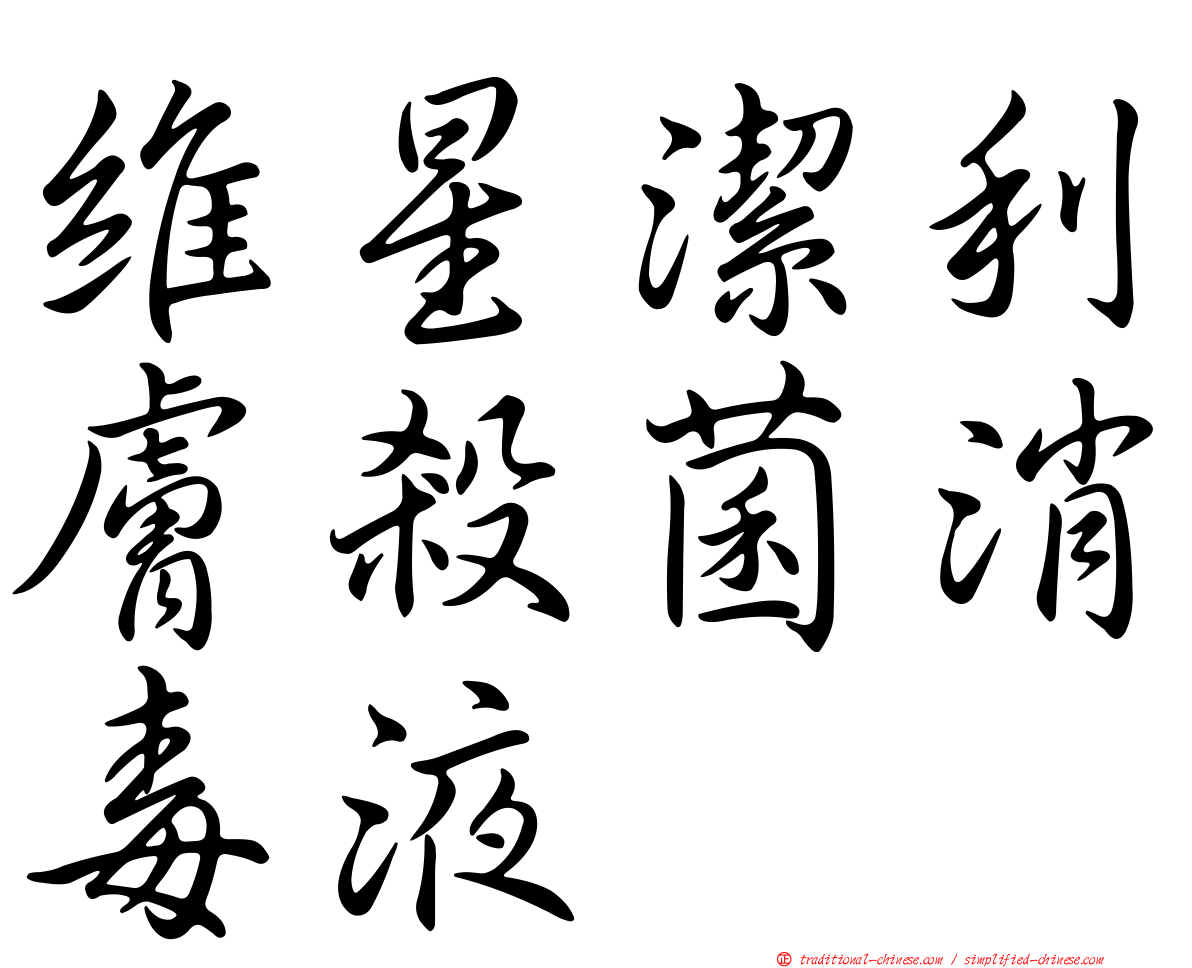 維星潔利
膚殺菌消
毒液
㊣ traditional-chinese.com / simplified-chinese.com